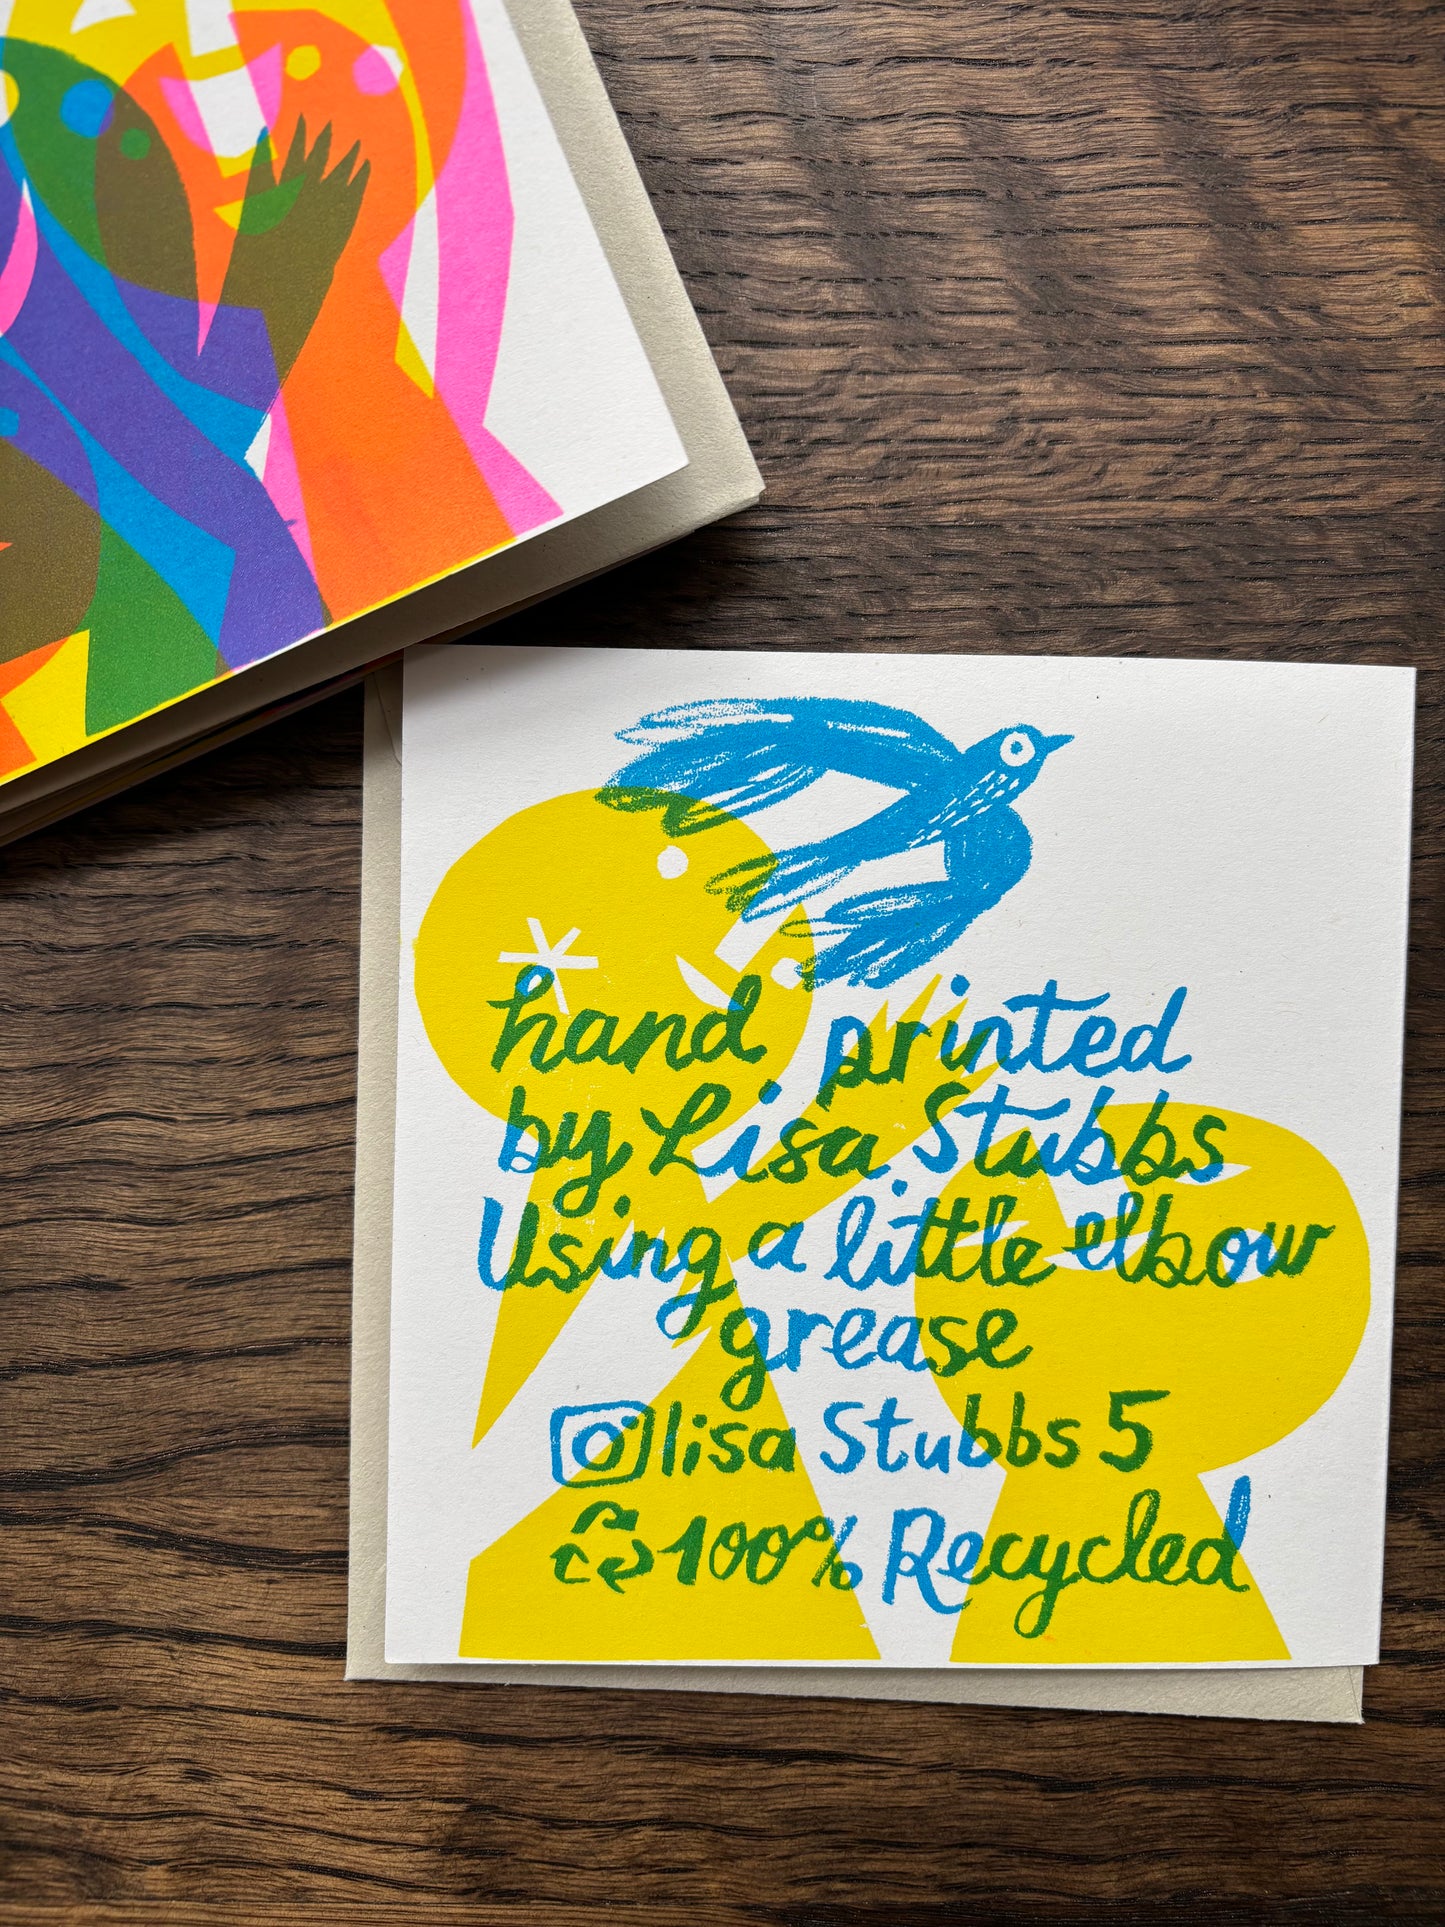 hand printed
by Lisa Stubbs
Using a little elbow
grease
lisa Stubbs 5
100% Recycled